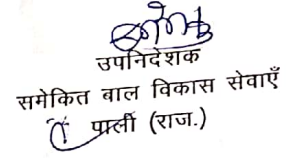 उपनिदेशक
समेकित बाल विकास सेवाएँ
पाली (राज.)